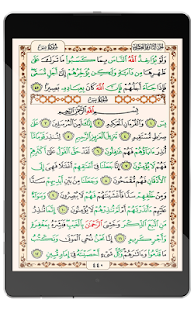 سُورَةُ فَاطِرٍ
وَلَوْ يُؤَاخِذُ اللَّهُ النَّاسَ بِمَا كَسَبُوا مَا تَرَكَ عَلَىٰ
ظَهْرِهَا مِن دَابَّةٍ وَلَٰكِن يُؤَخِّرُهُمْ إِلَىٰ أَجَلٍ مُّسَمًّى
فَإِذَا جَاءَ أَجَلُهُمْ فَإِنَّ اللَّهَ كَانَ بِعِبَادِهِ بَصِيرًا ٤٥
سُورَةُ يسٓ
بِسْمِ اللَّهِ الرَّحْمَٰنِ الرَّحِيمِ
يسٓ ١ وَالْقُرْءَانِ الْحَكِيمِ ٢ إِنَّكَ لَمِنَ الْمُرْسَلِينَ ٣ عَلَىٰ صِرَٰطٍ
مُّسْتَقِيمٍ ٤ تَنزِيلَ الْعَزِيزِ الرَّحِيمِ ٥ لِتُنذِرَ قَوْمًا مَّا أُنذِرَ
ءَابَاؤُهُمْ فَهُمْ غَٰفِلُونَ ٦ لَقَدْ حَقَّ الْقَوْلُ عَلَىٰ أَكْثَرِهِمْ
فَهُمْ لَا يُؤْمِنُونَ ٧ إِنَّا جَعَلْنَا فِي أَعْنَٰقِهِمْ أَغْلَٰلًا فَهِيَ إِلَى
الْأَذْقَانِ فَهُم مُّقْمَحُونَ ٨ وَجَعَلْنَا مِن بَيْنِ أَيْدِيهِمْ سَدًّا
وَمِنْ خَلْفِهِمْ سَدًّا فَأَغْشَيْنَٰهُمْ فَهُمْ لَا يُبْصِرُونَ ٩ وَسَوَاءٌ
عَلَيْهِمْ ءَأَنذَرْتَهُمْ أَمْ لَمْ تُنذِرْهُمْ لَا يُؤْمِنُونَ ١٠ إِنَّمَا تُنذِرُ
مَنِ اتَّبَعَ الذِّكْرَ وَخَشِيَ الرَّحْمَٰنَ بِالْغَيْبِ فَبَشِّرْهُ بِمَغْفِرَةٍ
وَأَجْرٍ كَرِيمٍ ١١ إِنَّا نَحْنُ نُحْيِ الْمَوْتَىٰ وَنَكْتُبُ
مَا قَدَّمُوا وَءَاثَٰرَهُمْ وَكُلَّ شَيْءٍ أَحْصَيْنَٰهُ فِي إِمَامٍ مُّبِينٍ ١٢
٤٤٠